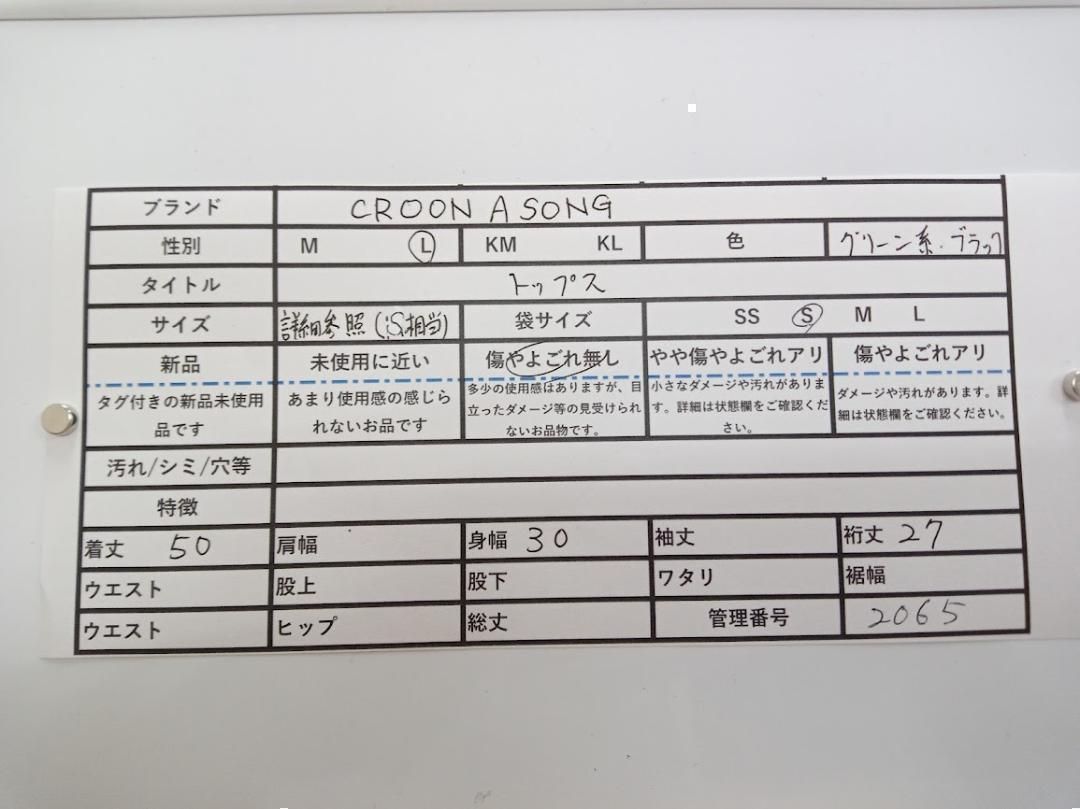 ブランド CROON A SONG
性別 M L KM KL 色 グリーン系・ブラック
タイトル トップス
サイズ 詳細参照(S相当) 袋サイズ SS S M L
新品 未使用に近い 傷やよごれ無し やや傷やよごれアリ 傷やよごれアリ
タグ付きの新品未使用
品です
あまり使用感の感じら
れないお品です
多少の使用感はありますが、目
立ったダメージ等の見受けられ
ないお品物です。
小さなダメージや汚れがありま
す。詳細は状態欄をご確認くだ
さい。
ダメージや汚れがあります。詳
細は状態欄をご確認ください。
汚れ/シミ/穴等
特徴
着丈 50 肩幅 身幅 30 袖丈 裄丈 27
ウエスト 股上 股下 ワタリ 裾幅
ウエスト ヒップ 総丈 管理番号 2065